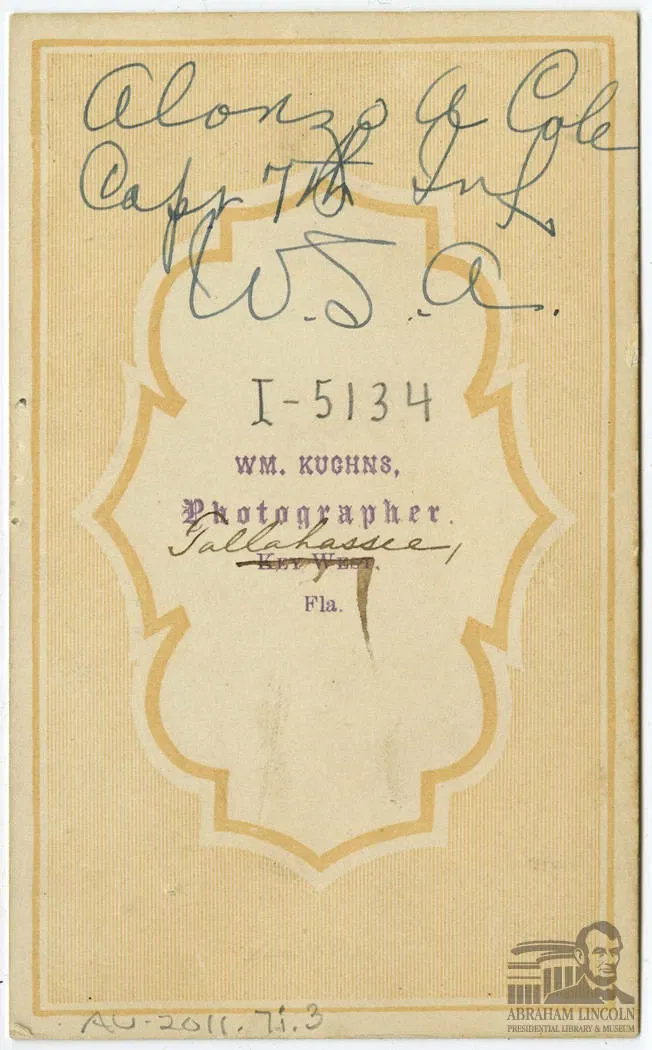 Alonzo A Cole
Capt 7th Inf.
U.S.A.
I-5134
WM. KUGHNS,
Photographer.
Tallahassee,
KEY WEST,
Fla.
AV-2011.71.3
ABRAHAM LINCOLN
PRESIDENTIAL LIBRARY & MUSEUM